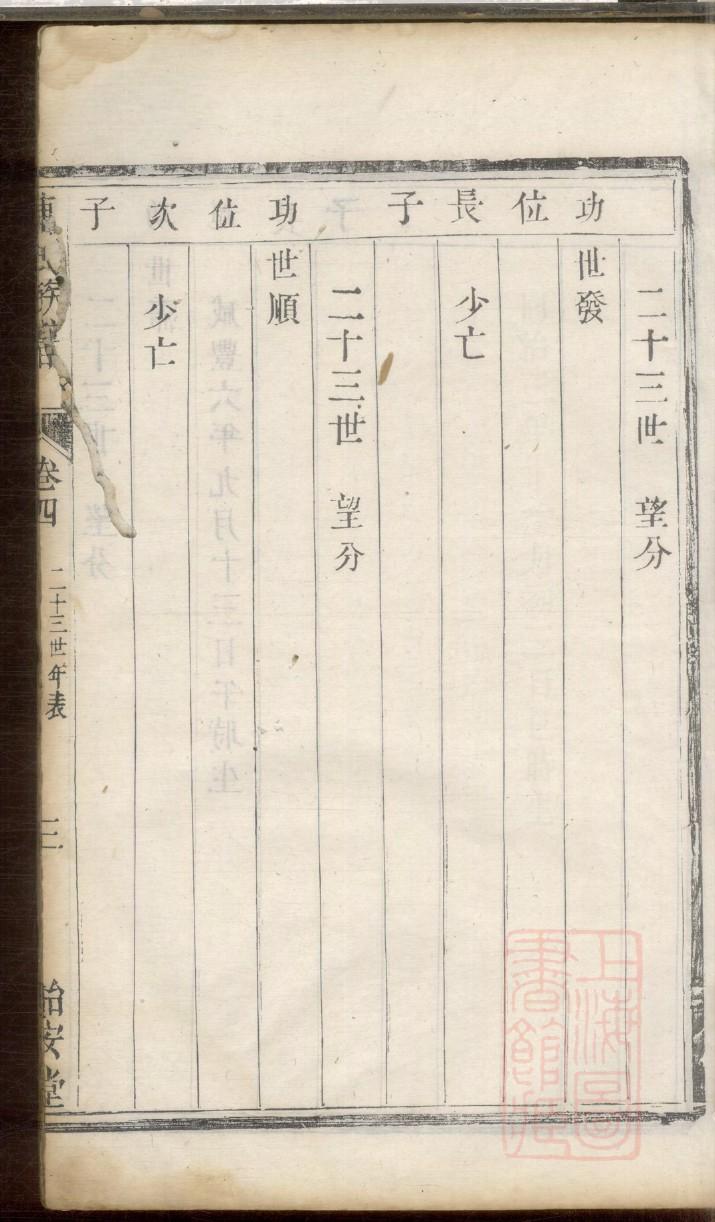 二十三世 望分
功位長子
世發
少亡
二十三世 望分
功位次子
世順
少亡
卷四
二十三世年表
三
怡安堂
上海圖
書館藏